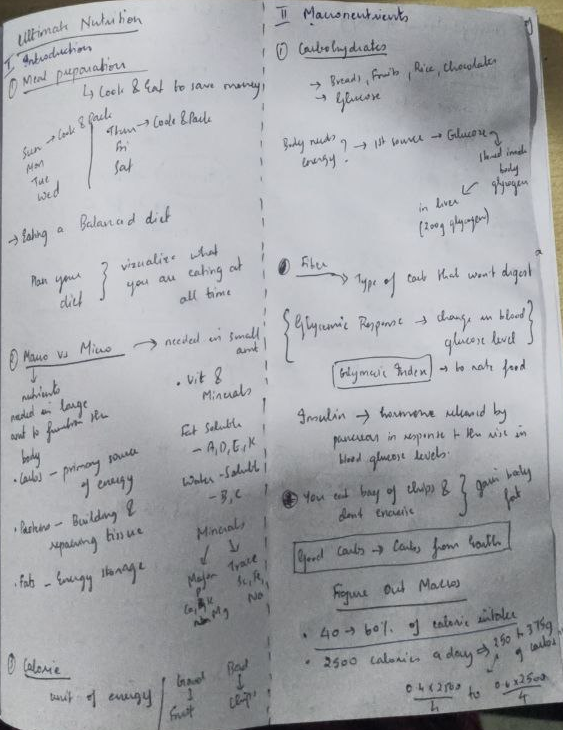 Ultimate Nutrition
I. Introduction
① Meal preparation
↳ Cook & Eat to save money
Sun → Cook & Pack
Mon
Tue
Wed
Thur → Cook & Pack
Fri
Sat
→ Eating a Balanced diet
Plan your diet } visualize what
you are eating at
all time
② Macro vs Micro → needed in small
amt
nutrients
needed in large
amt to function the
body
• Carbs - primary source
of energy
• Proteins - Building &
repairing tissue
• Fats - Energy storage
• Vit &
Minerals
Fat Soluble
- A, D, E, K
Water-Soluble
- B, C
Minerals
Major
Trace
Mg
③ Calorie
unit of energy
Good
Fruit
Bad
Chips
II Macronutrients
① Carbohydrates
→ Breads, Fruits, Rice, Chocolates
→ Glucose
Body needs
energy? → 1st source → Glucose
stored inside
body
glycogen
in liver
(200g glycogen)
Fiber
→ Type of carb that won't digest
{ Glycemic Response → change in blood
glucose level }
Glycemic Index → to rate food
Insulin → hormone released by
pancreas in response to the rise in
blood glucose levels.
You eat bag of chips &
dont exercise } gain body
fat
Good Carbs → Carbs from Earth
Figure Out Macros
• 40 → 60% of calorie intake
• 2500 calories a day ⇒ 250 to 375g
of carbs
0.4 x 2500
4
to
0.6 x 2500
4